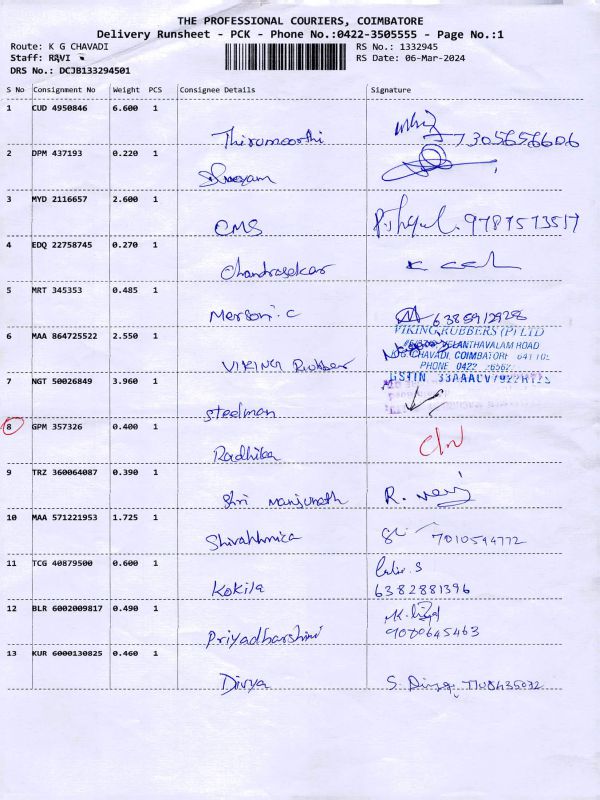 THE PROFESSIONAL COURIERS, COIMBATORE
Delivery Runsheet - PCK - Phone No.:0422-3505555 - Page No.:1
Route: K G CHAVADI RS No.: 1332945
Staff: RAVI RS Date: 06-Mar-2024
DRS No.: DCJB133294501
S No Consignment No Weight PCS Consignee Details Signature
1 CUD 4950846 6.600 1
Thirumoorthi 7305656606
2 DPM 437193 0.220 1
3 MYD 2116657 2.600 1
CMS 9787573517
4 EDQ 22758745 0.270 1
Chandrasekar
5 MRT 345353 0.485 1
Mersoni.c 6385912925
VIKING RUBBERS (P) LTD
6 MAA 864725522 2.550 1 VELANTHAVALAM ROAD
CHAVADI, COIMBATORE 641 105
VIKING Rubber PHONE 0422
7 NGT 50026849 3.960 1 GSTIN 33AAACV7922R1ZS
Steelman
8 GPM 357326 0.400 1
Radhika
9 TRZ 360064087 0.390 1
Shri Manjunath
10 MAA 571221953 1.725 1
7010544772
11 TCG 40879500 0.600 1
Kokila 6382881396
12 BLR 6002009817 0.490 1
Priyadharshini 9080645463
13 KUR 6000130825 0.460 1
Divya S. Divya